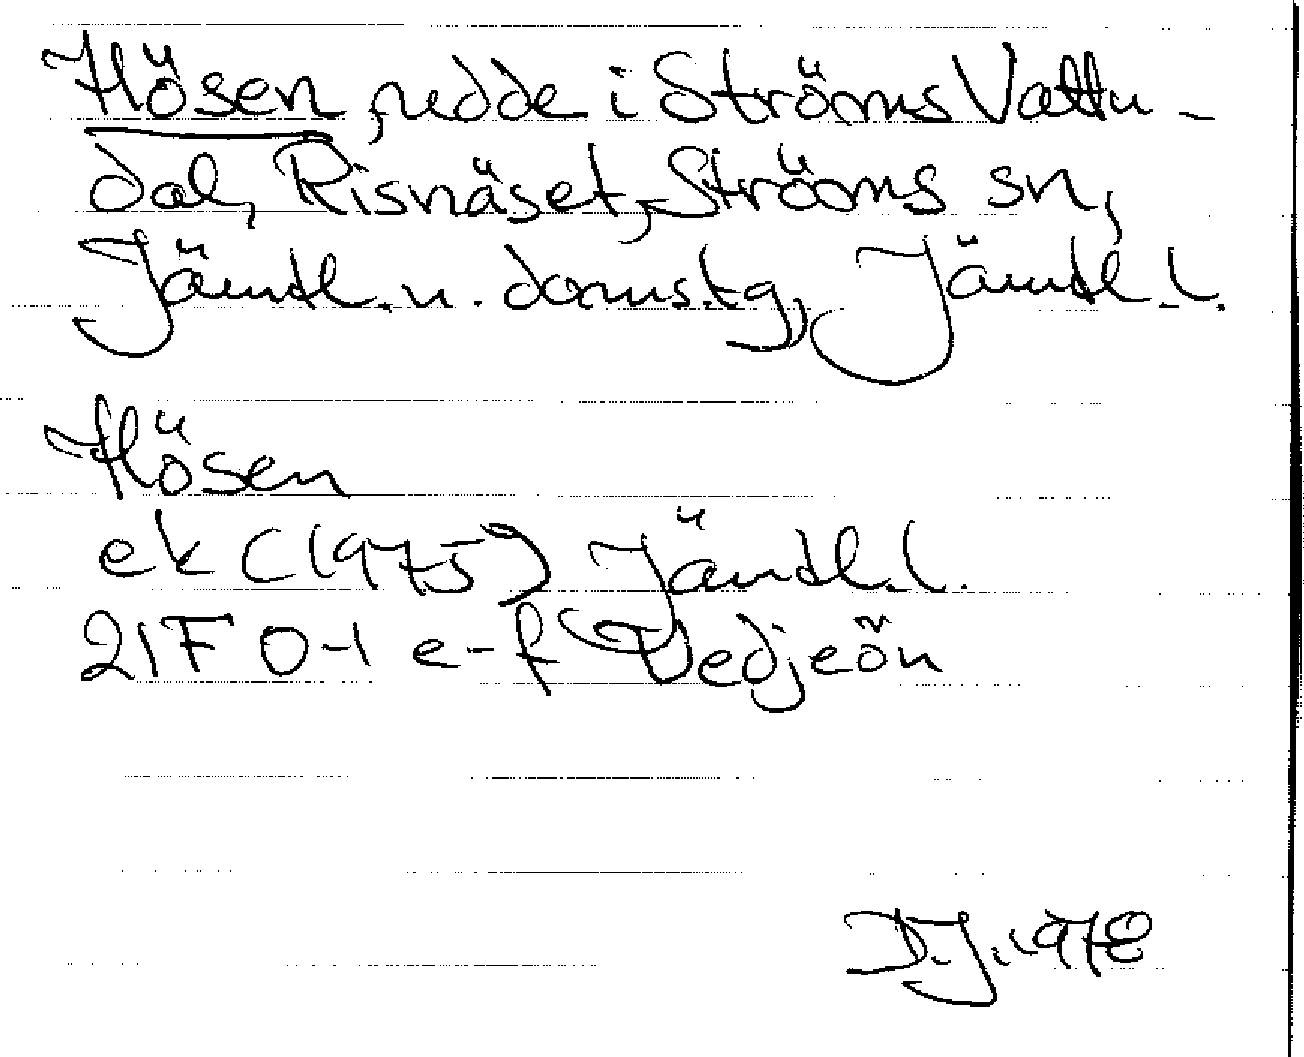 Hösen, udde i Ströms Vattu-
dal, Risnäset, Ströms sn,
Jämtl. n. domstg, Jämtl. l.
Hösen
ek (1975) Jämtl. l.
21F 0-1 e-f Vedjeön
D.J. 1978